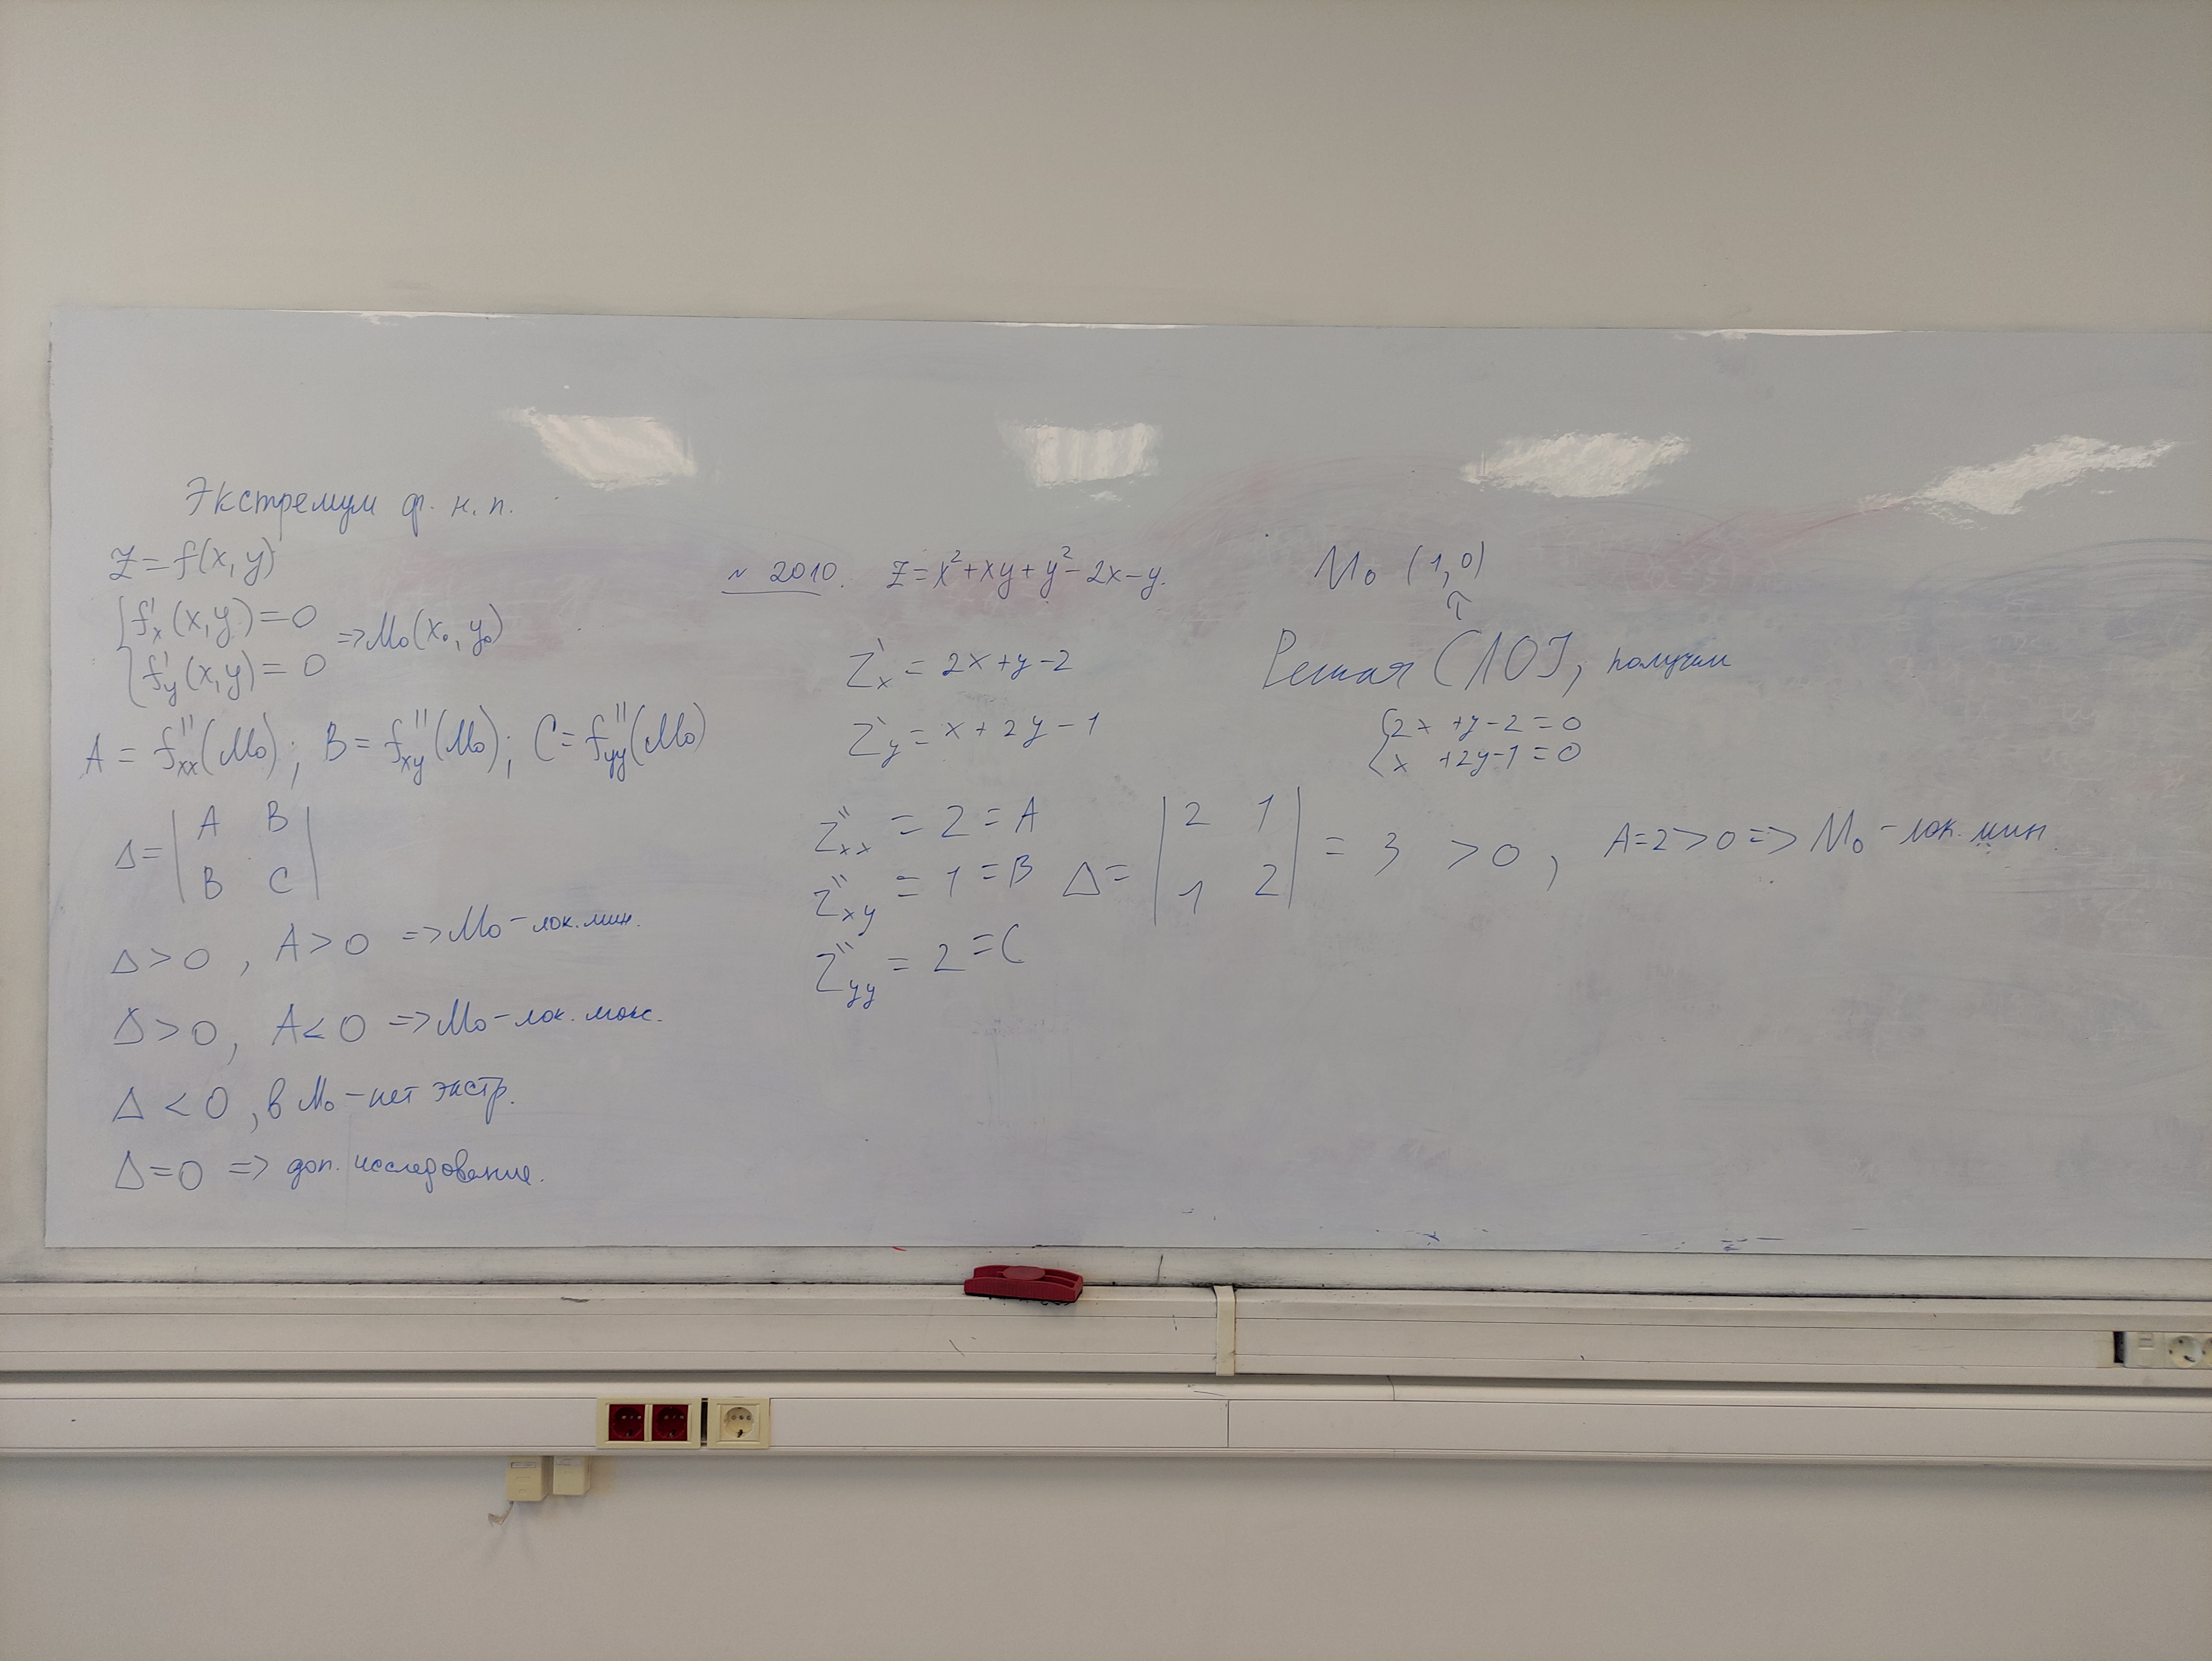 Экстремум ф. н. п.
Z = f(x, y)
{ f'x (x, y) = 0
{ f'y (x, y) = 0
=> M₀(x₀, y₀)
A = f''xx(M₀); B = f''xy(M₀); C = f''yy(M₀)
Δ = | A B |
| B C |
Δ > 0, A > 0 => M₀ - лок. мин.
Δ > 0, A < 0 => M₀ - лок. макс.
Δ < 0, в M₀ - нет экстр.
Δ = 0 => доп. исследование.
№ 2010. Z = x² + xy + y² - 2x - y.
Z'x = 2x + y - 2
Z'y = x + 2y - 1
Z''xx = 2 = A
Z''xy = 1 = B
Z''yy = 2 = C
Δ = | 2 1 |
| 1 2 | = 3 > 0, A = 2 > 0 => M₀ - лок. мин.
M₀ (1, 0)
⇑
Решая , получим
{ 2x + y - 2 = 0
{ x + 2y - 1 = 0